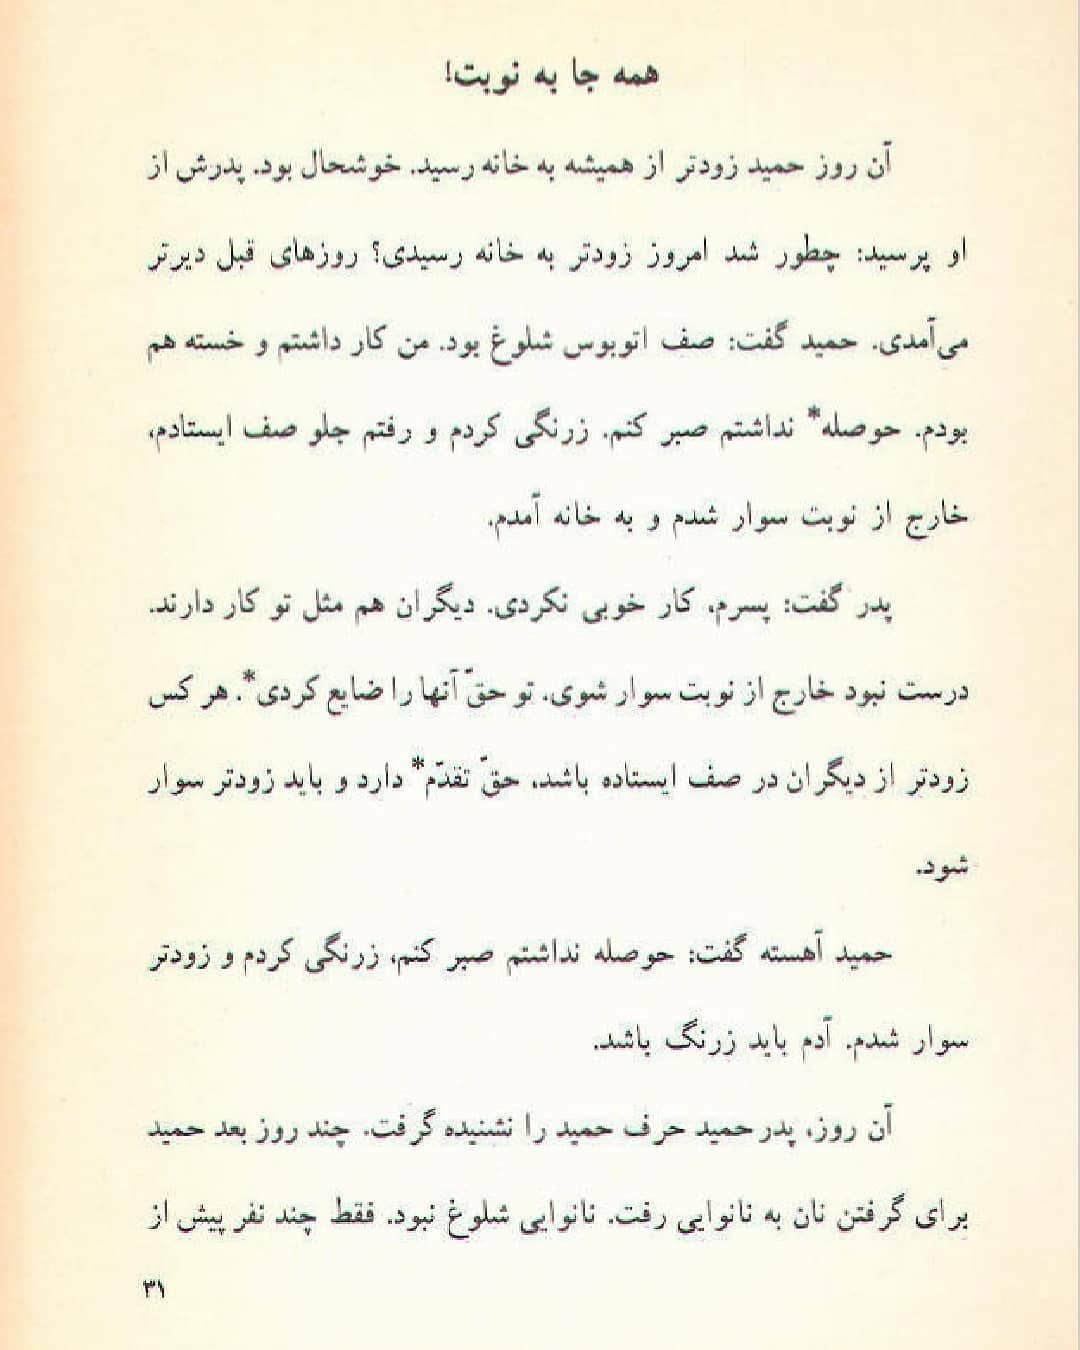 همه جا به نوبت!
آن روز حمید زودتر از همیشه به خانه رسید. خوشحال بود. پدرش از
او پرسید: چطور شد امروز زودتر به خانه رسیدی؟ روزهای قبل دیرتر
می‌آمدی. حمید گفت: صف اتوبوس شلوغ بود. من کار داشتم و خسته هم
بودم. حوصله* نداشتم صبر کنم. زرنگی کردم و رفتم جلو صف ایستادم،
خارج از نوبت سوار شدم و به خانه آمدم.
پدر گفت: پسرم، کار خوبی نکردی. دیگران هم مثل تو کار دارند.
درست نبود خارج از نوبت سوار شوی. تو حقّ آنها را ضایع کردی*. هر کس
زودتر از دیگران در صف ایستاده باشد، حقّ تقدّم* دارد و باید زودتر سوار
شود.
حمید آهسته گفت: حوصله نداشتم صبر کنم، زرنگی کردم و زودتر
سوار شدم. آدم باید زرنگ باشد.
آن روز، پدر حمید حرف حمید را نشنیده گرفت. چند روز بعد حمید
برای گرفتن نان به نانوایی رفت. نانوایی شلوغ نبود. فقط چند نفر پیش از
۳۱